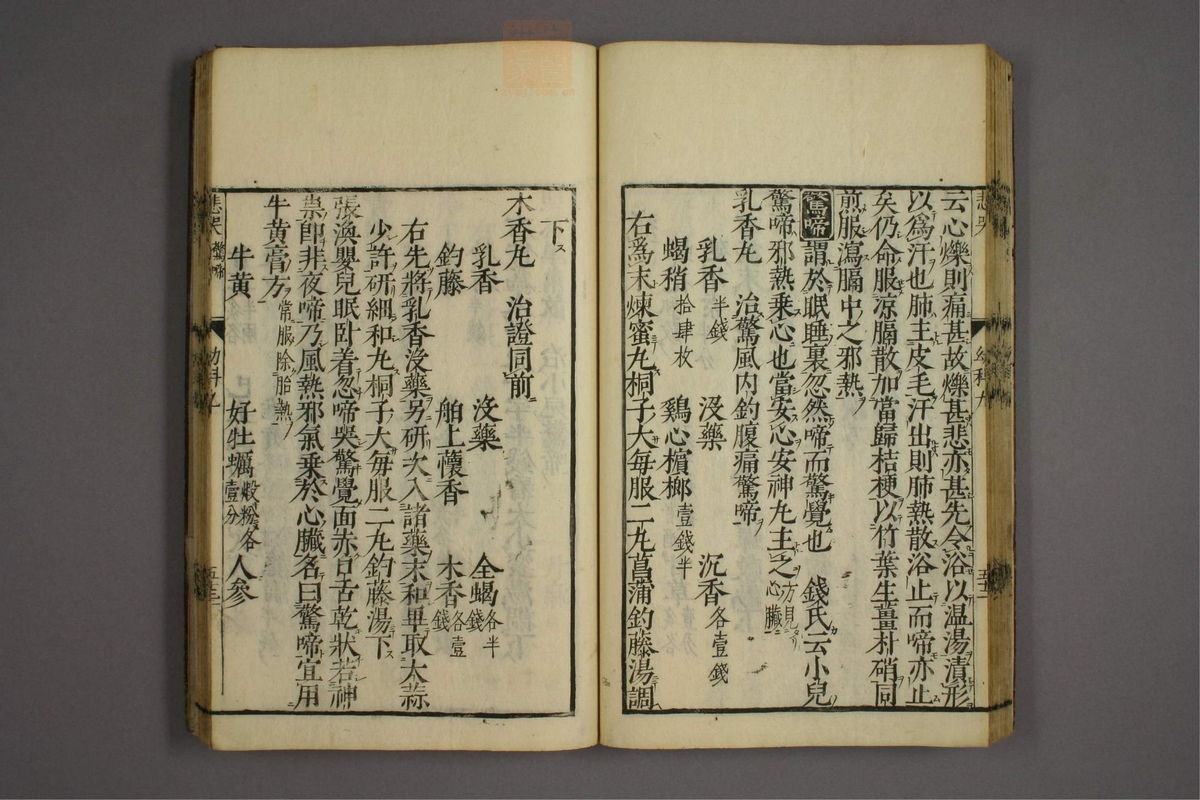 云心爍則痛甚故爍甚悲亦甚先令浴以温湯漬形
以爲汗也肺主皮毛汗出則肺熱散浴止而啼亦止
矣仍命服凉膈散加當歸桔梗以竹葉生薑朴硝同
煎服瀉膈中之邪熱
驚啼 謂於眠睡裏忽然啼而驚覺也 錢氏云小兒
驚啼邪熱乗心也當安心安神丸主之方見心臟
乳香丸 治驚風内釣腹痛驚啼
乳香半錢 没藥 沉香各壹錢
蝎稍拾肆枚 鷄心檳榔壹錢半
右爲末煉蜜丸桐子大每服二丸菖蒲釣藤湯調
下
木香丸 治證同前
乳香 没藥 全蝎各半錢
釣藤 舶上蘹香 木香各壹錢
右先將乳香没藥另研次入諸藥末和畢取大蒜
少許研細和丸桐子大每服二丸釣藤湯下
張渙嬰兒眠卧着忽啼哭驚覺面赤口舌乾狀若神
祟即非夜啼乃風熱邪氣乗於心臟名曰驚啼宜用
牛黄膏方常服除胎熱
牛黄 好牡蠣煅粉各壹分 人參
悲哭 驚啼
幼科九
五十三